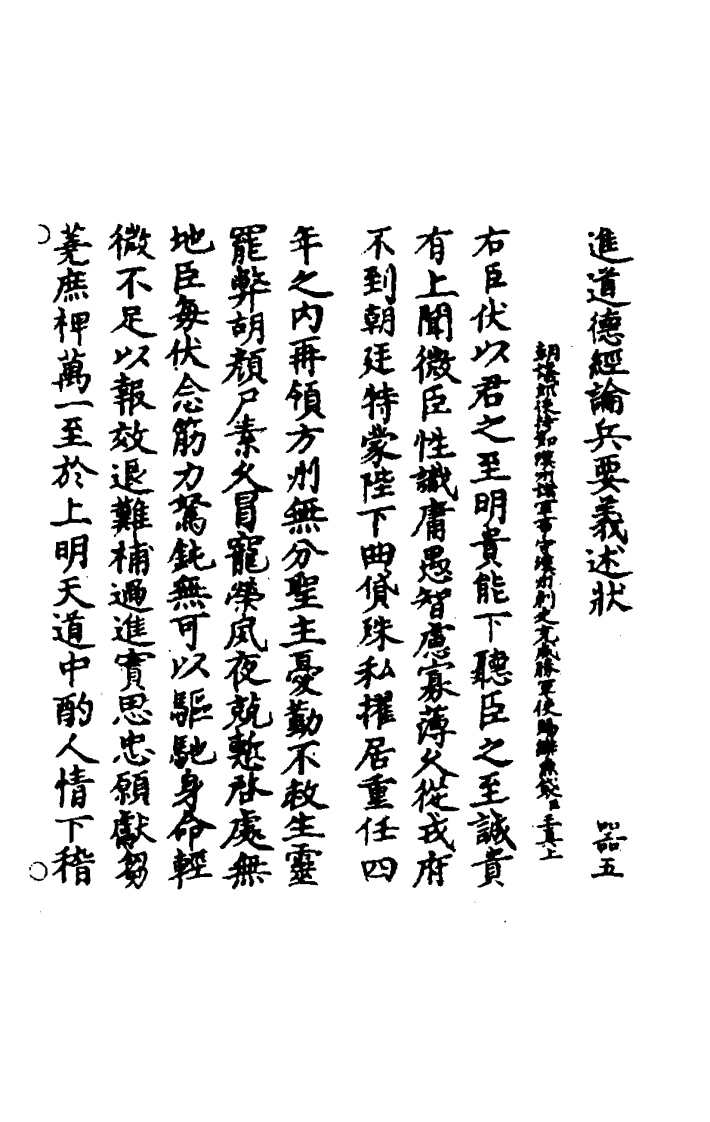 進道德經論兵要義述狀 器五
朝議郎使持節漢州諸軍事守漢州刺史充威勝軍使賜緋魚袋臣王真上
右臣伏以君之至明貴能下聽臣之至誠貴
有上聞微臣性識庸愚智慮寡薄久從戎府
不到朝廷特蒙陛下曲貸殊私擢居重任四
年之内再領方州無分聖主憂勤不救生靈
罷弊胡顏尸素久冒寵榮夙夜兢慙啓處無
地臣每伏念筋力駑鈍無可以驅馳身命輕
微不足以報效退難補過進實思忠願獻芻
蕘庶裨萬一至於上明天道中酌人情下稽